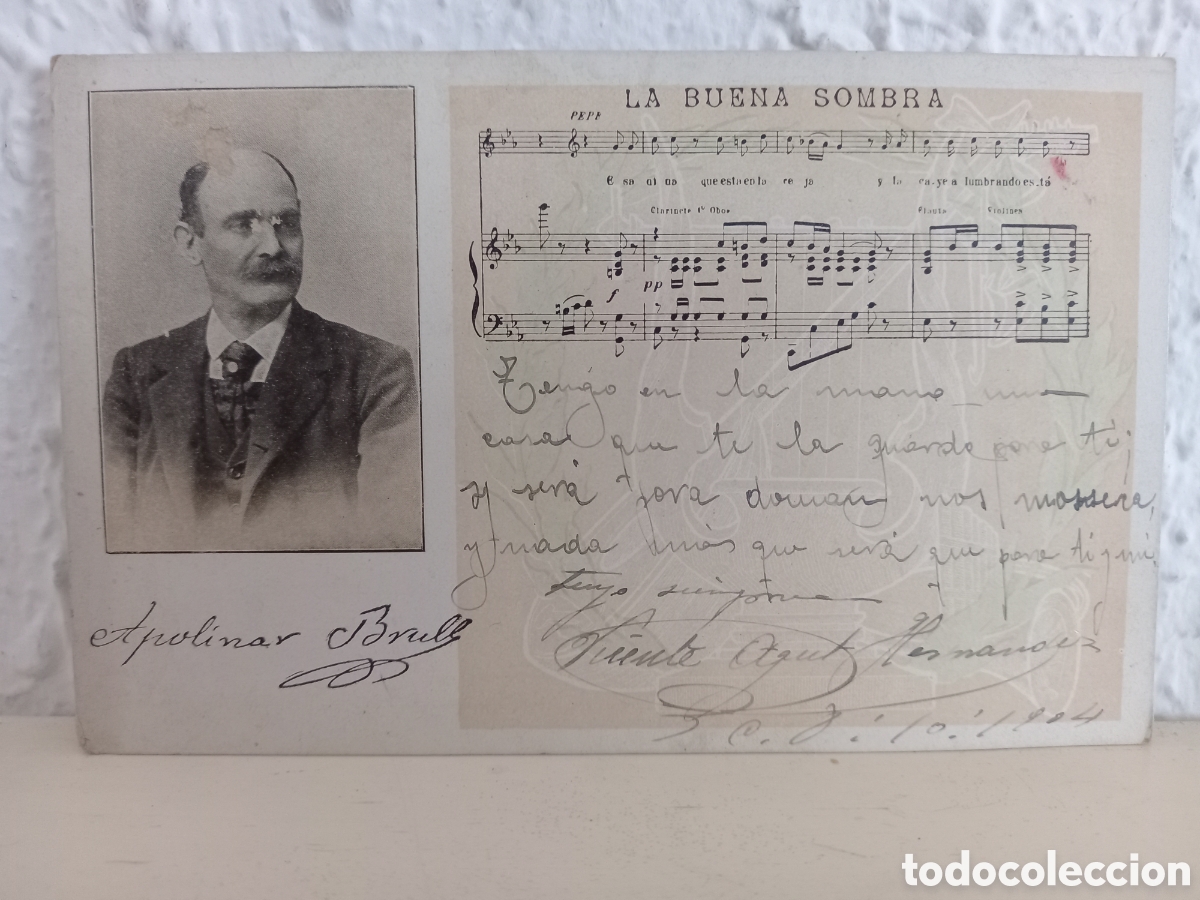 LA BUENA SOMBRA
PEPE
E sa ni ña que está en la re ja y la ca-ye a lumbrando es-tá
Clarinete 1º Oboe Flauta Violines
f pp
Tengo en la mano una
que te la guardo para ti;
y será para
y nada más que será que para ti y mi
tuyo siempre
Apolinar Brull
Vicente Agut Hernandez
1904
todocoleccion